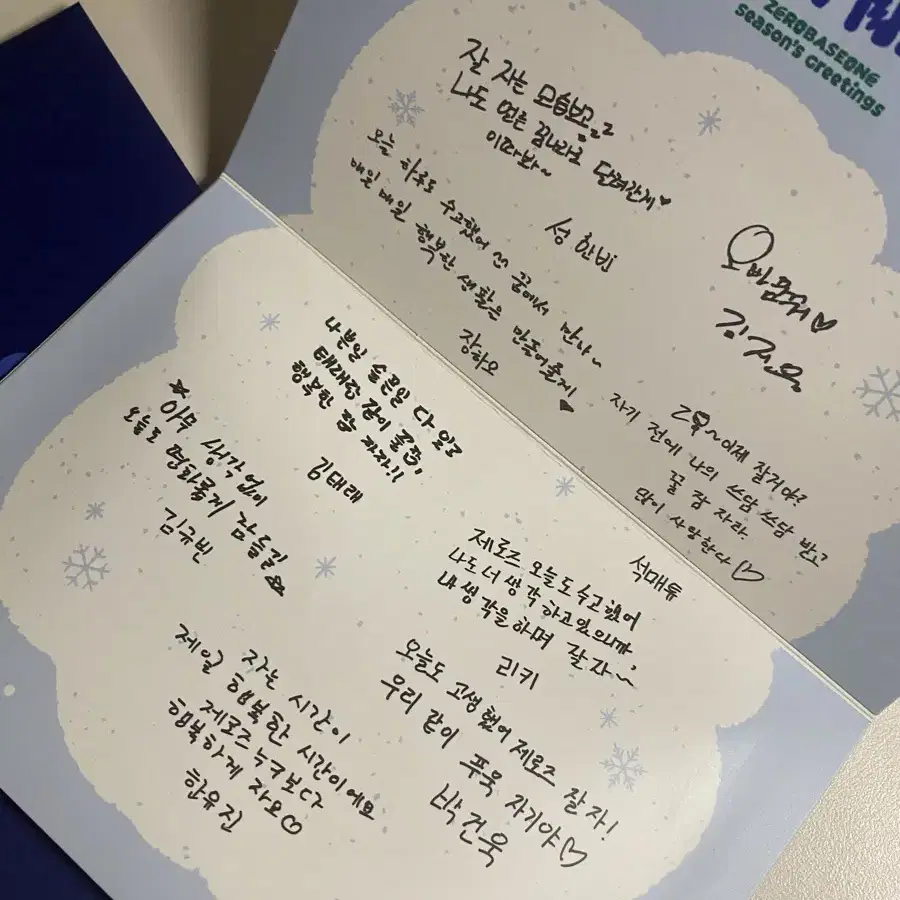 ZEROBASEONE
season's greetings
잘 자는 모습보고zzz
나도 얼른 꿈나라로 달려간게♥
이따봐~
성한빈
오늘 하루도 수고했어 선 꿈에서 만나~
매일 매일 행복한 생활은 만들어줄게♥
장하오
김지웅
ZB~이제 잘거야?
자기 전에 나의 쓰담 쓰담 받고
꿀 잠 자라.
많이 사랑한다♡
석매튜
나쁜일 슬픈일 다 잊고
태래랑 같이 꿀잠,
행복한 잠 자자!!
김태래
☆아무 생각 없이
오늘도 평화롭게 잠들길☆
김규빈
제로즈 오늘도 수고했어
나도 너 생각하고있으니까,
내 생각을하며 잘자~
리키
오늘도 고생했어 제로즈 잘자!
우리 같이 푸욱 자기야♡
박건욱
자는 시간이
제일 행복한 시간이에요
제로즈 누구보다
행복하게 자요♡
한유진